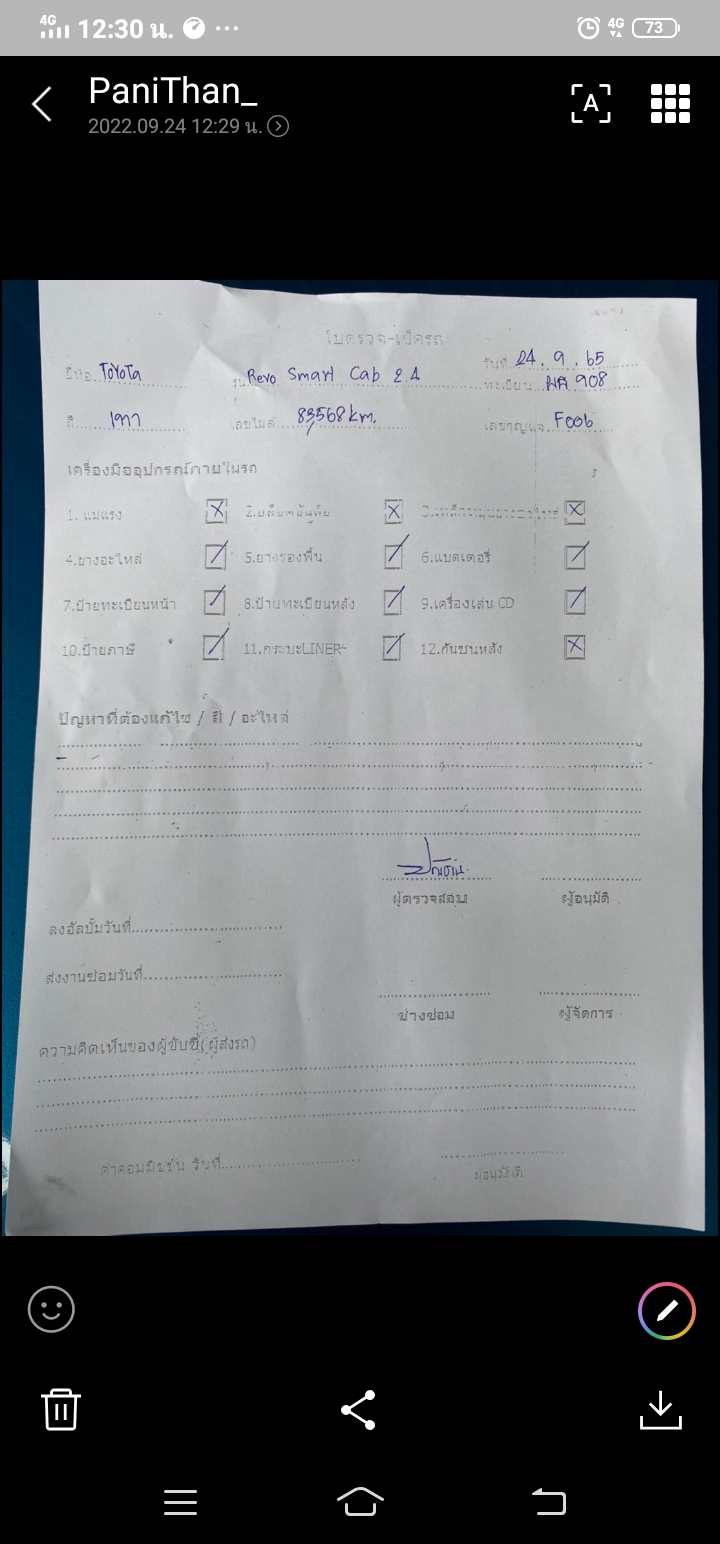 4G 12:30 น. 4G 73
PaniThan_
2022.09.24 12:29 น.
A
ใบตรวจ-เช็ครถ
ยี่ห้อ ToYoTa รุ่น Revo Smart Cab 2.4 วันที่ 24.9.65
ทะเบียน 908
สี เทา เลขไมล์ 83,568 km. เลขกุญแจ F006
เครื่องมืออุปกรณ์ภายในรถ
1. แม่แรง ☒ 2. ☒ 3. ☒
4.ยางอะไหล่ ☑ 5.ยางรองพื้น ☑ 6.แบตเตอรี่ ☑
7.ป้ายทะเบียนหน้า ☑ 8.ป้ายทะเบียนหลัง ☑ 9.เครื่องเล่น CD ☑
10.ป้ายภาษี ☑ 11.กระบะLINER ☑ 12.กันชนหลัง ☒
ปัญหาที่ต้องแก้ไข / สี / อะไหล่
ผู้ตรวจสอบ ผู้อนุมัติ
ลงอัลบั้มวันที่
ส่งงานซ่อมวันที่
ช่างซ่อม ผู้จัดการ
ความคิดเห็นของผู้ขับขี่(ผู้ส่งรถ)
ค่าคอมมิชชั่น วันที่
ผู้อนุมัติ